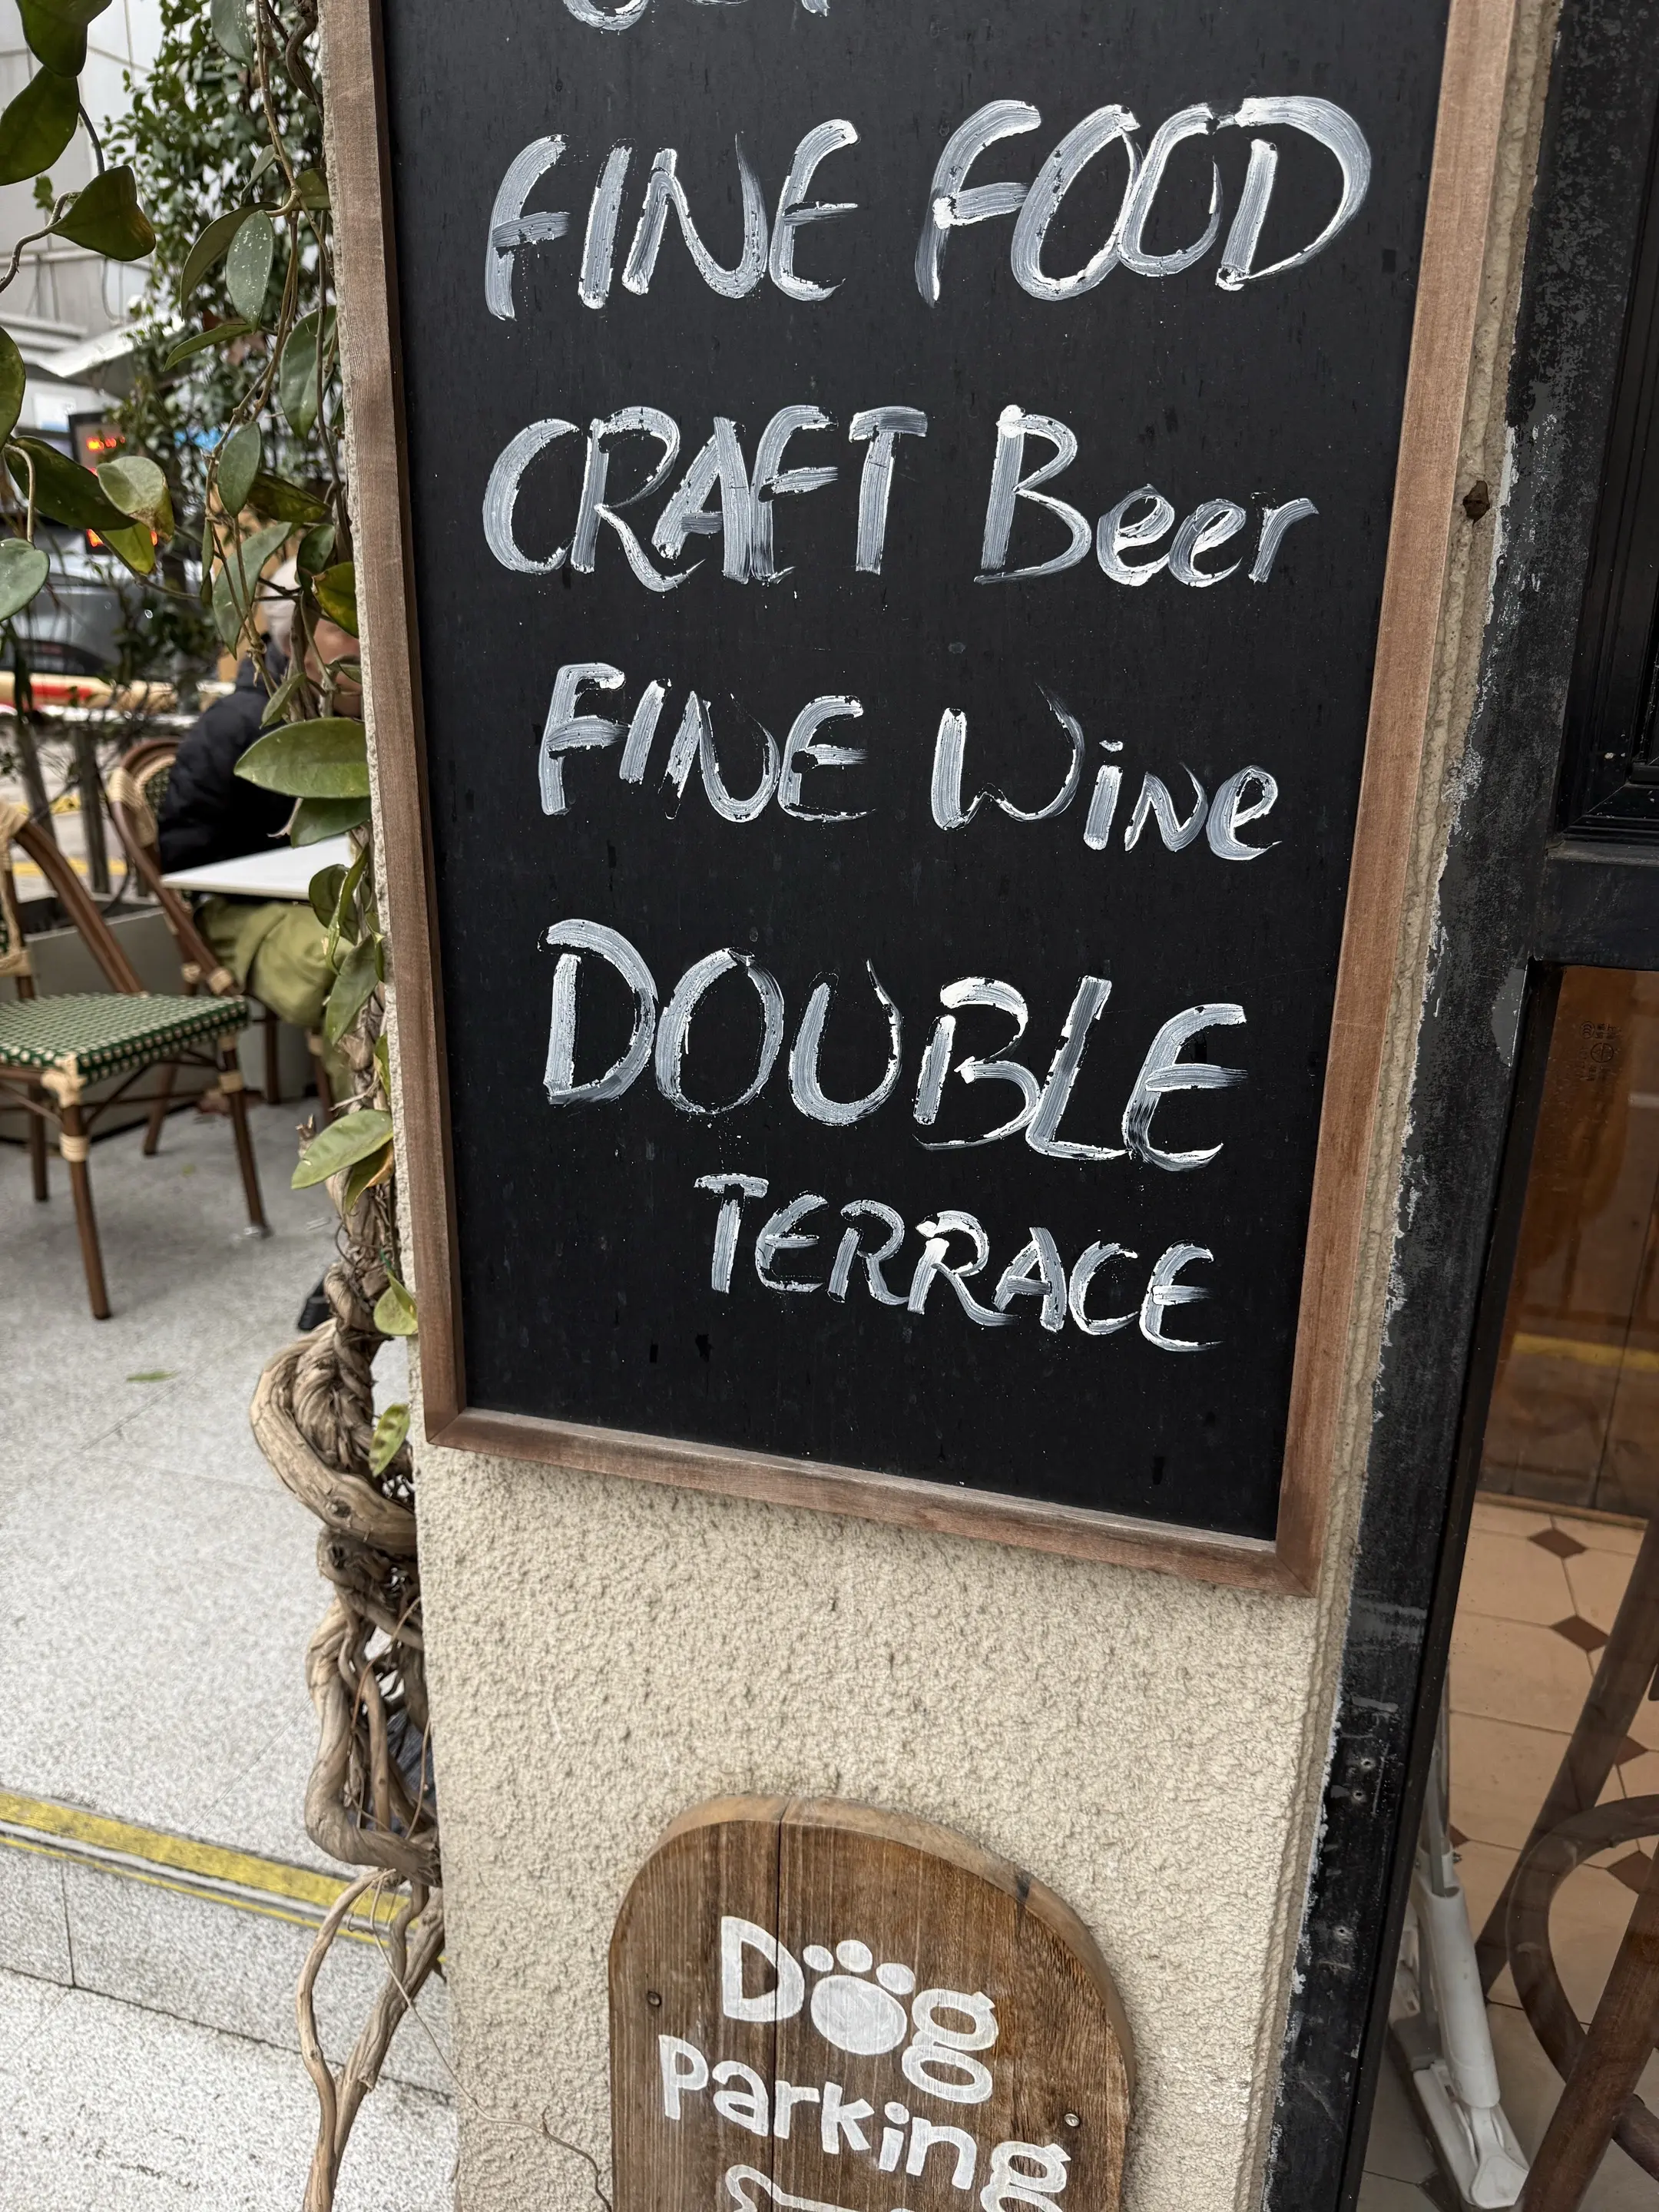 FINE FOOD
CRAFT Beer
FINE Wine
DOUBLE
TERRACE
Dog
Parking